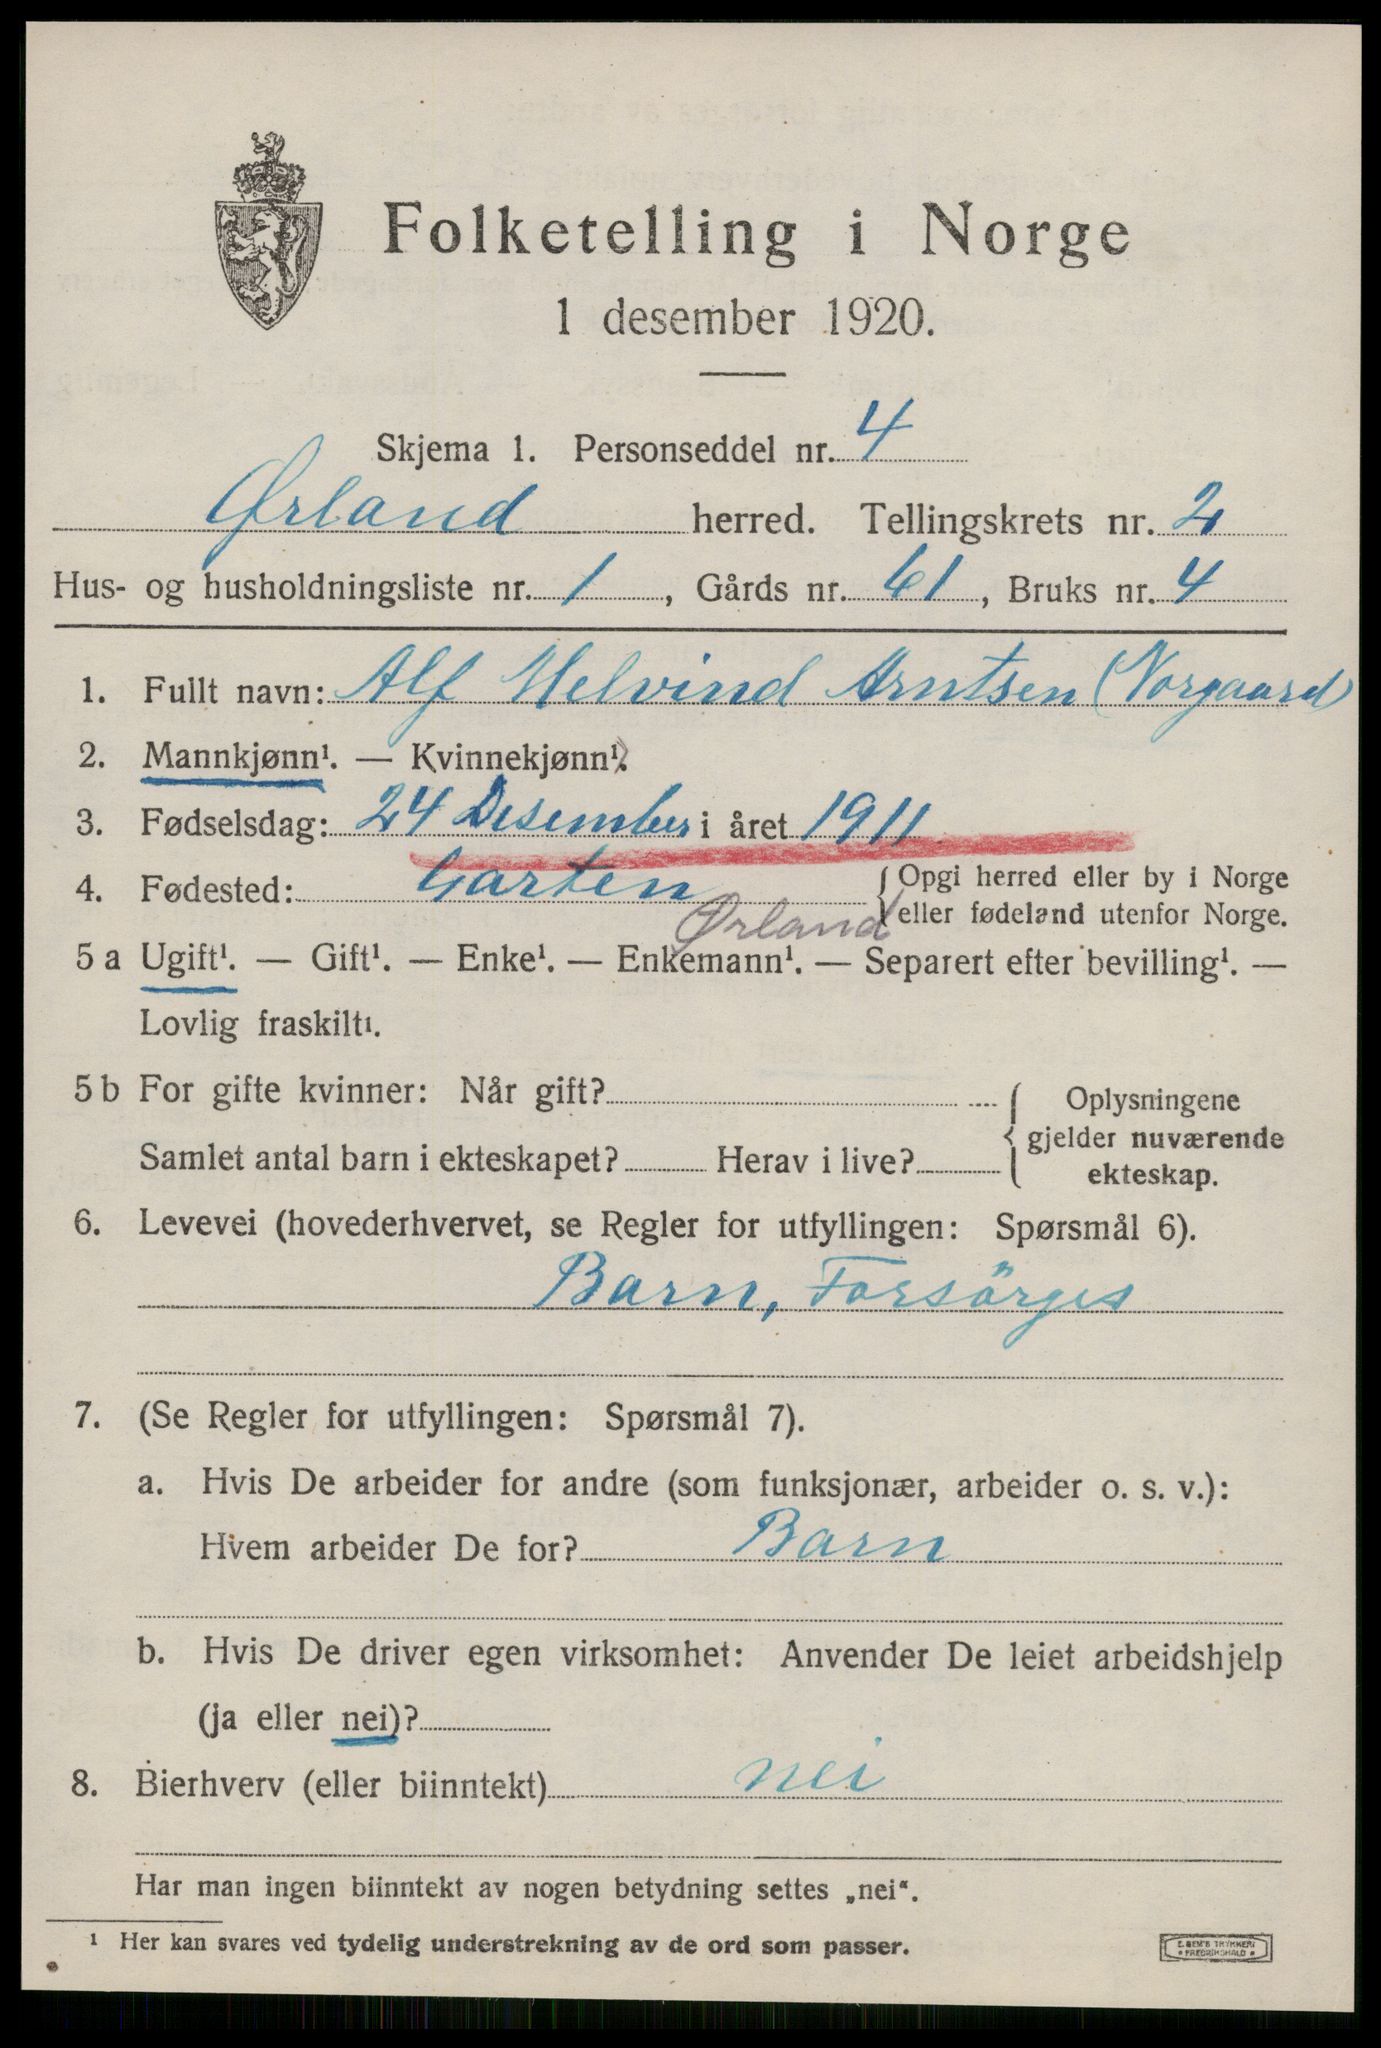 Folketelling i Norge
1 desember 1920.
Skjema 1. Personseddel nr. 4
Ørland herred. Tellingskrets nr. 2
Hus- og husholdningsliste nr. 1, Gårds nr. 61, Bruks nr. 4
1. Fullt navn: Alf Melvind Arntsen (Norgaard)
2. Mannkjønn¹. — Kvinnekjønn¹.
3. Fødselsdag: 24 Desember i året 1911
4. Fødested: Garten { Opgi herred eller by i Norge
Ørland eller fødeland utenfor Norge.
5 a Ugift¹. — Gift¹. — Enke¹. — Enkemann¹. — Separert efter bevilling¹. —
Lovlig fraskilt¹.
5 b For gifte kvinner: Når gift? { Oplysningene
gjelder nuværende
Samlet antal barn i ekteskapet? Herav i live? ekteskap.
6. Levevei (hovederhvervet, se Regler for utfyllingen: Spørsmål 6).
Barn, Forsörges
7. (Se Regler for utfyllingen: Spørsmål 7).
a. Hvis De arbeider for andre (som funksjonær, arbeider o. s. v.):
Hvem arbeider De for? Barn
b. Hvis De driver egen virksomhet: Anvender De leiet arbeidshjelp
(ja eller nei)?
8. Bierhverv (eller biinntekt) nei
Har man ingen biinntekt av nogen betydning settes „nei“.
¹ Her kan svares ved tydelig understrekning av de ord som passer.
E. SEM'S TRYKKERI
• FREDRIKSHALD •